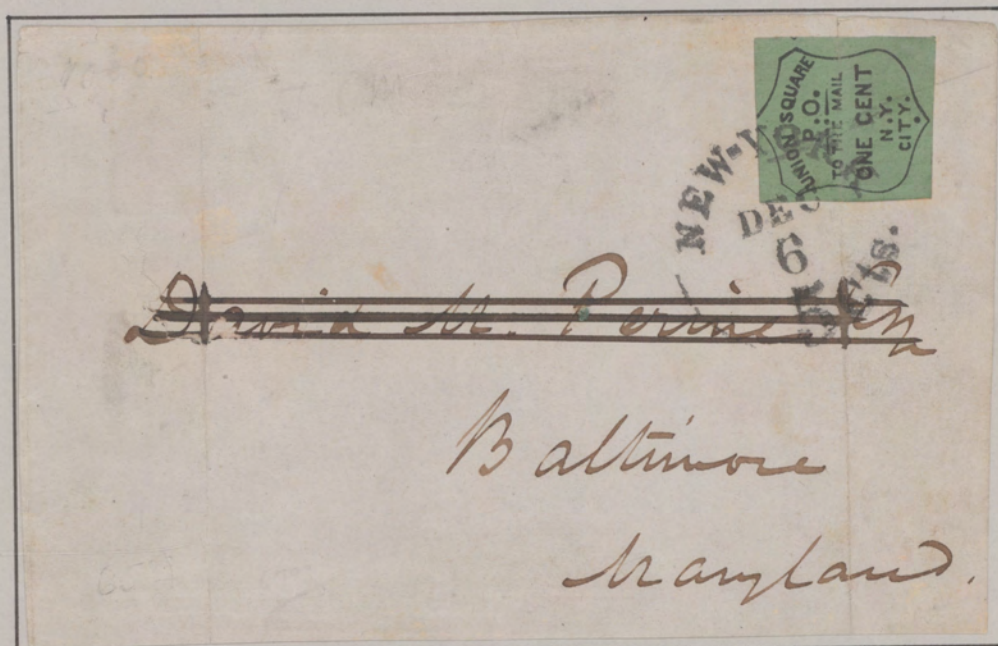 UNION SQUARE
P.O.
TO THE MAIL
ONE CENT
N.Y.
CITY.
NEW-
DEC
6
Cts.
David M. Perine
Baltimore
Maryland.